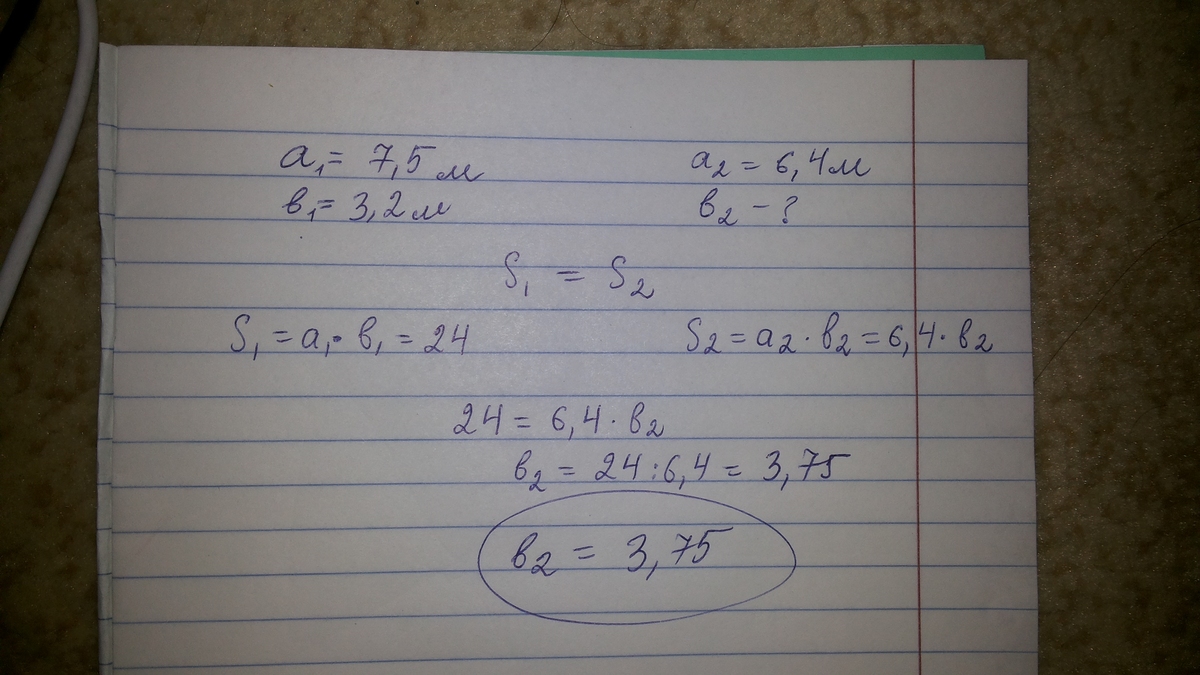 a₁ = 7,5 м
a₂ = 6,4 м
в₁ = 3,2 м
в₂ - ?
S₁ = S₂
S₁ = a₁ · в₁ = 24
S₂ = a₂ · в₂ = 6,4 · в₂
24 = 6,4 · в₂
в₂ = 24 : 6,4 = 3,75
в₂ = 3,75